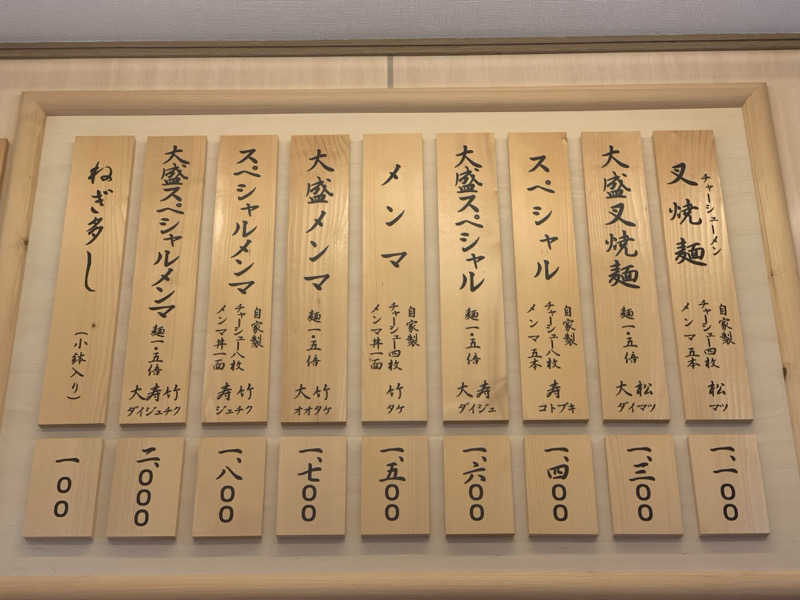 叉焼麺
チャーシューメン
自家製
チャーシュー四枚
メンマ五本
松
マツ
一、一００
大盛叉焼麺
麺一・五倍
大松
ダイマツ
一、三００
スペシャル
自家製
チャーシュー八枚
メンマ五本
寿
コトブキ
一、四００
大盛スペシャル
麺一・五倍
大寿
ダイジュ
一、六００
メンマ
自家製
チャーシュー四枚
メンマ丼一面
竹
タケ
一、五００
大盛メンマ
麺一・五倍
大竹
オオタケ
一、七００
スペシャルメンマ
自家製
チャーシュー八枚
メンマ丼一面
寿竹
ジュチク
一、八００
大盛スペシャルメンマ
麺一・五倍
大寿竹
ダイジュチク
二、０００
ねぎ多し
（小鉢入り）
一００